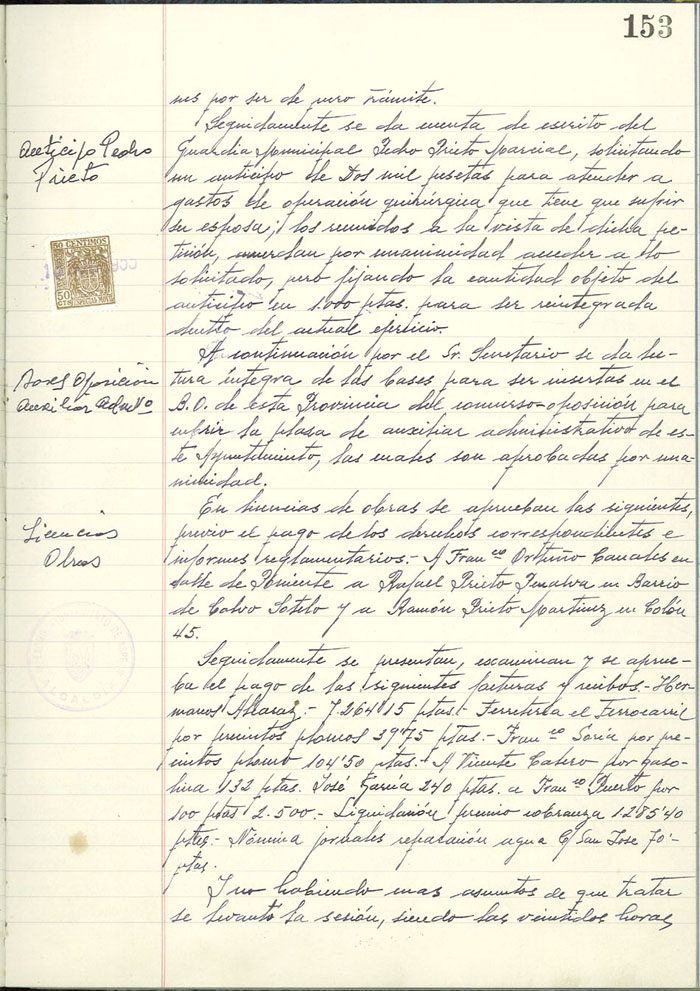 153
nes por ser de puro trámite.
Seguidamente se da cuenta de escrito del
Anticipo Pedro
Prieto
Guardia Municipal Pedro Prieto Marcial, solicitando
un anticipo de Dos mil pesetas para atender a
gastos de operación quirúrgica que tiene que sufrir
su esposa; los reunidos a la vista de dicha pe-
tición, acuerdan por unanimidad acceder a lo
solicitado, pero fijando la cantidad objeto del
anticipo en 1.000 ptas. para ser reintegrada
dentro del actual ejercicio.
50 CENTIMOS
50
A continuación por el Sr. Secretario se da lec-
Bases Oposición
Auxiliar Admvo
tura íntegra de las bases para ser insertas en el
B.O. de esta Provincia del concurso-oposición para
cubrir la plaza de auxiliar administrativo de es-
te Ayuntamiento, las cuales son aprobadas por una-
nimidad.
Licencias
Obras
En licencias de obras se aprueban las siguientes,
previo el pago de los derechos correspondientes e
informes reglamentarios.- A Franco Ortuño Canales en
calle de Poniente a Rafael Prieto Penalva en Barrio
de Calvo Sotelo y a Ramón Prieto Martinez en Colón
45.
ALCALDIA
Seguidamente se presentan, examinan y se aprue-
ba el pago de las siguientes facturas y recibos.- Her-
manos Alcaraz.- 7.264'15 ptas.- Ferretersa el Ferrocarril
por precintos plomos 39'75 ptas.- Franco Soria por pre-
cintos plomo 104'50 ptas.- A Vicente Calero por gaso-
lina 132 ptas. José García 240 ptas. a Franco Puerto por
100 ptas 2.500.- Liquidación premio cobranza 1285'40
ptas.- Nómina jornales reparación agua C/ San Jose 70'-
ptas.
Y no habiendo mas asuntos de que tratar
se levantó la sesión, siendo las veintidos horas,